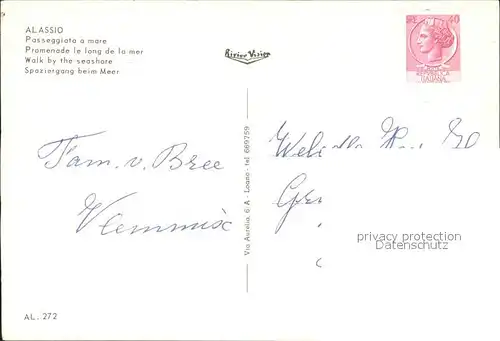 ALASSIO
Passeggiata a mare
Promenade le long de la mer
Walk by the seashore
Spaziergang beim Meer
Riviera Vision
40
Fam. v. Bree
Vlemmix
Via Aurelia, 6 A - Loano - tel 669759
privacy protection
Datenschutz
AL. 272